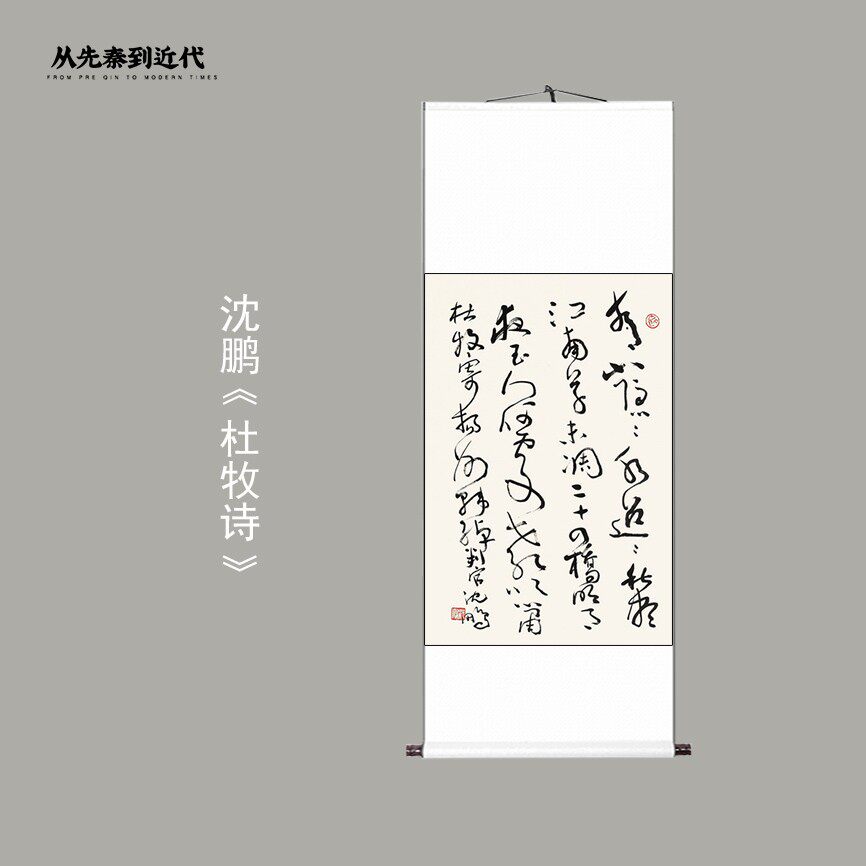 从先秦到近代
FROM PRE QIN TO MODERN TIMES
沈鹏《杜牧诗》
青山隱〻水迢〻秋盡
江南草未凋二十四橋明月
夜玉人何處教吹簫
杜牧寄揚州韩绰判官沈鹏